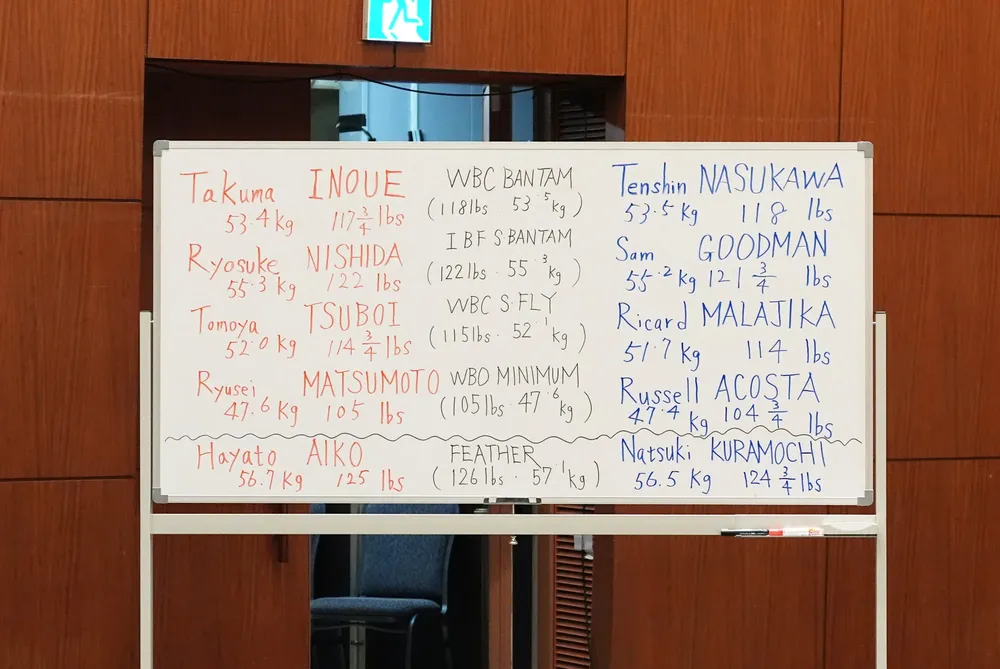 Takuma INOUE WBC BANTAM Tenshin NASUKAWA
53.4 kg 117 3/4 lbs (118 lbs 53.5 kg) 53.5 kg 118 lbs
Ryosuke NISHIDA IBF S BANTAM Sam GOODMAN
55.3 kg 122 lbs (122 lbs · 55.3 kg) 55.2 kg 121 3/4 lbs
Tomoya TSUBOI WBC S·FLY Ricard MALAJIKA
52.0 kg 114 3/4 lbs (115 lbs · 52.1 kg) 51.7 kg 114 lbs
Ryusei MATSUMOTO WBO MINIMUM Russell ACOSTA
47.6 kg 105 lbs (105 lbs · 47.6 kg) 47.4 kg 104 3/4 lbs
Hayato AIKO FEATHER Natsuki KURAMOCHI
56.7 kg 125 lbs (126 lbs · 57.1 kg) 56.5 kg 124 3/4 lbs